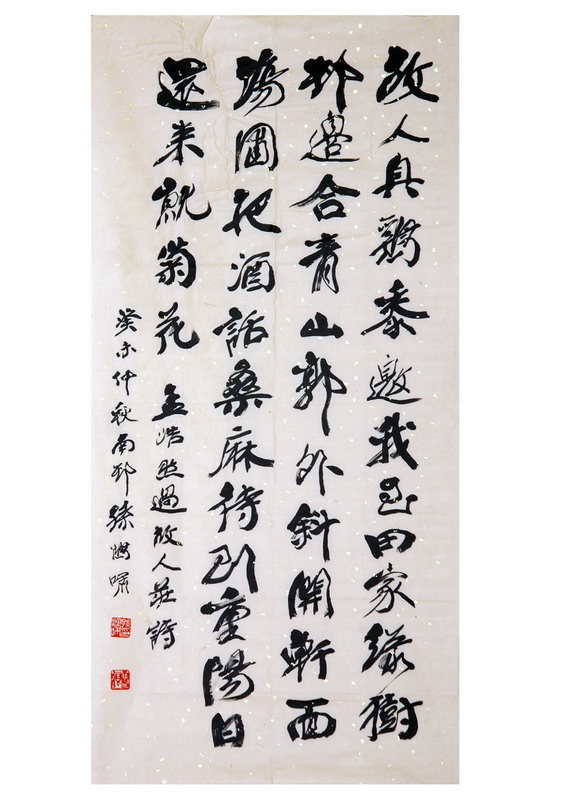 故人具鷄黍邀我至田家緑樹
邨邊合青山郭外斜開軒面
場圃把酒話桑麻待到重陽日
還来就菊花 孟浩然過故人莊詩
癸未仲秋南邨